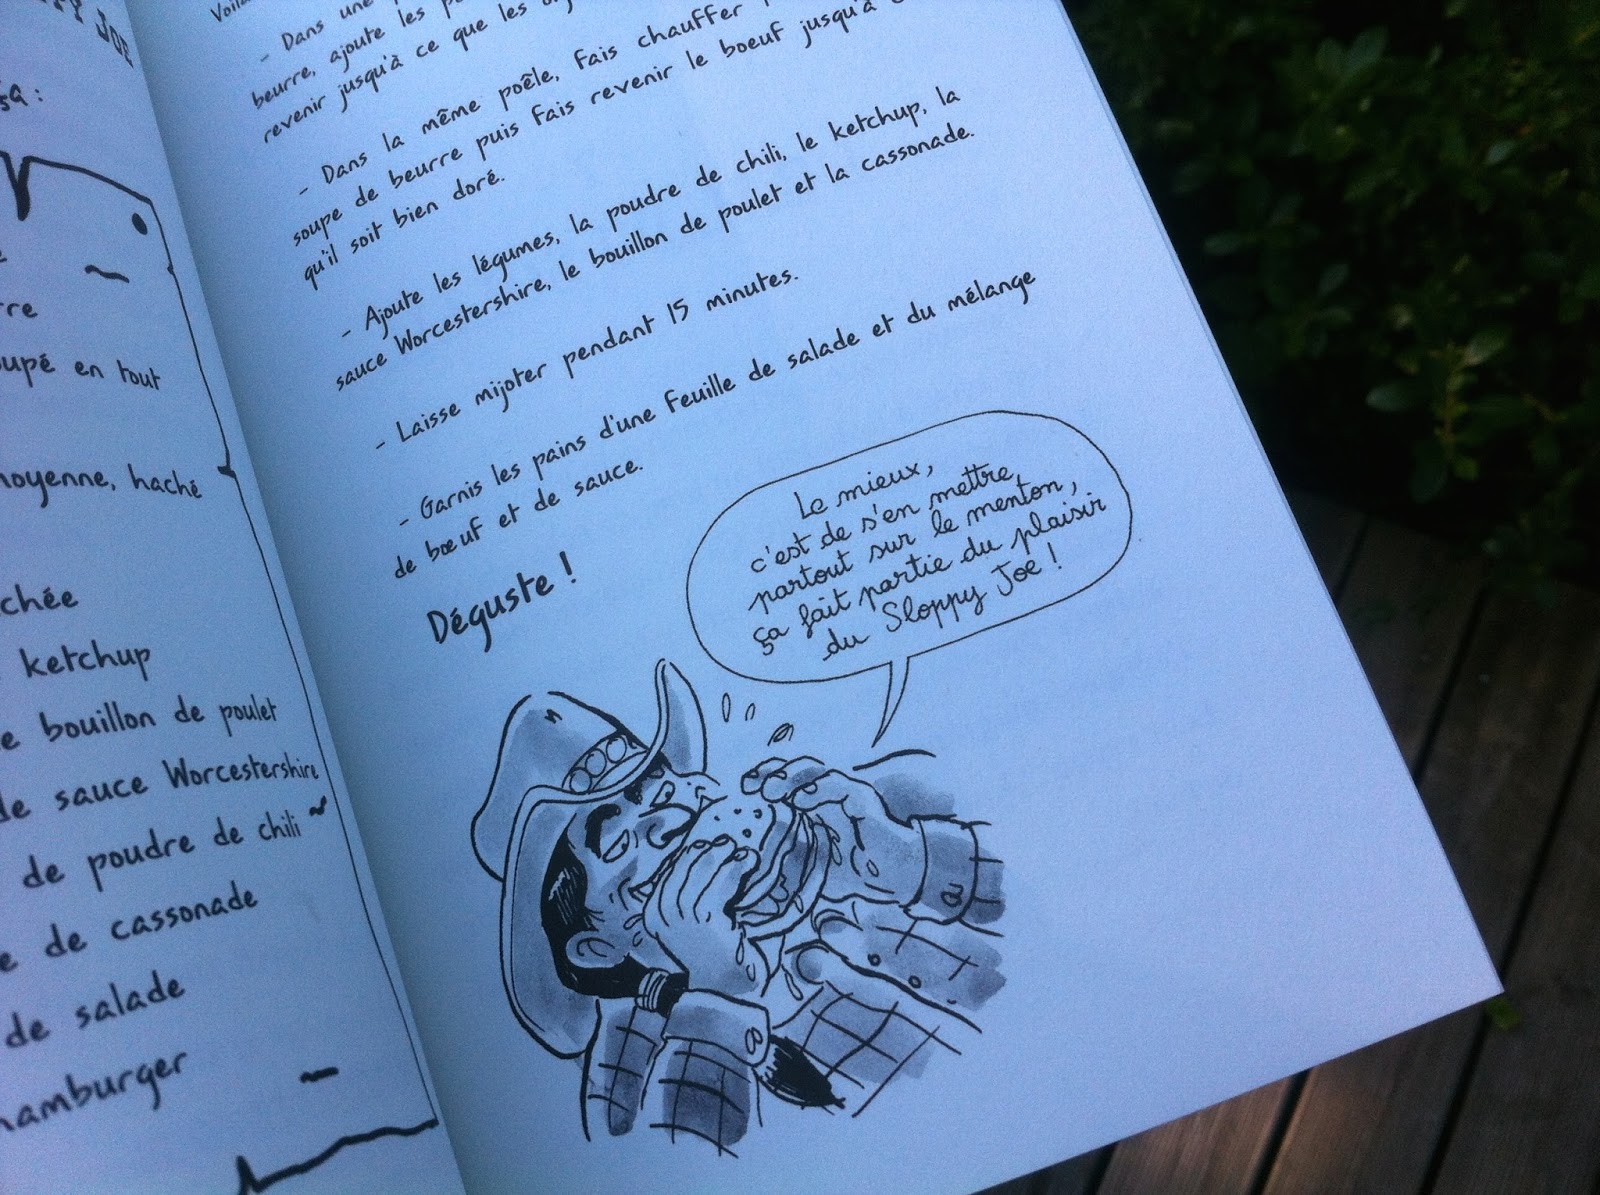 JOE
:
rre
upé en tout
moyenne, haché
chée
ketchup
e bouillon de poulet
de sauce Worcestershire
de poudre de chili
e de cassonade
de salade
hamburger
Voilà
- Dans une
beurre, ajoute les
revenir jusqu'à ce que les
- Dans la même poêle, fais chauffer
soupe de beurre puis fais revenir le boeuf jusqu'à
qu'il soit bien doré.
- Ajoute les légumes, la poudre de chili, le ketchup, la
sauce Worcestershire, le bouillon de poulet et la cassonade.
- Laisse mijoter pendant 15 minutes.
- Garnis les pains d'une feuille de salade et du mélange
de bœuf et de sauce.
Déguste !
Le mieux,
c'est de s'en mettre
partout sur le menton,
ça fait partie du plaisir
du Sloppy Joe !